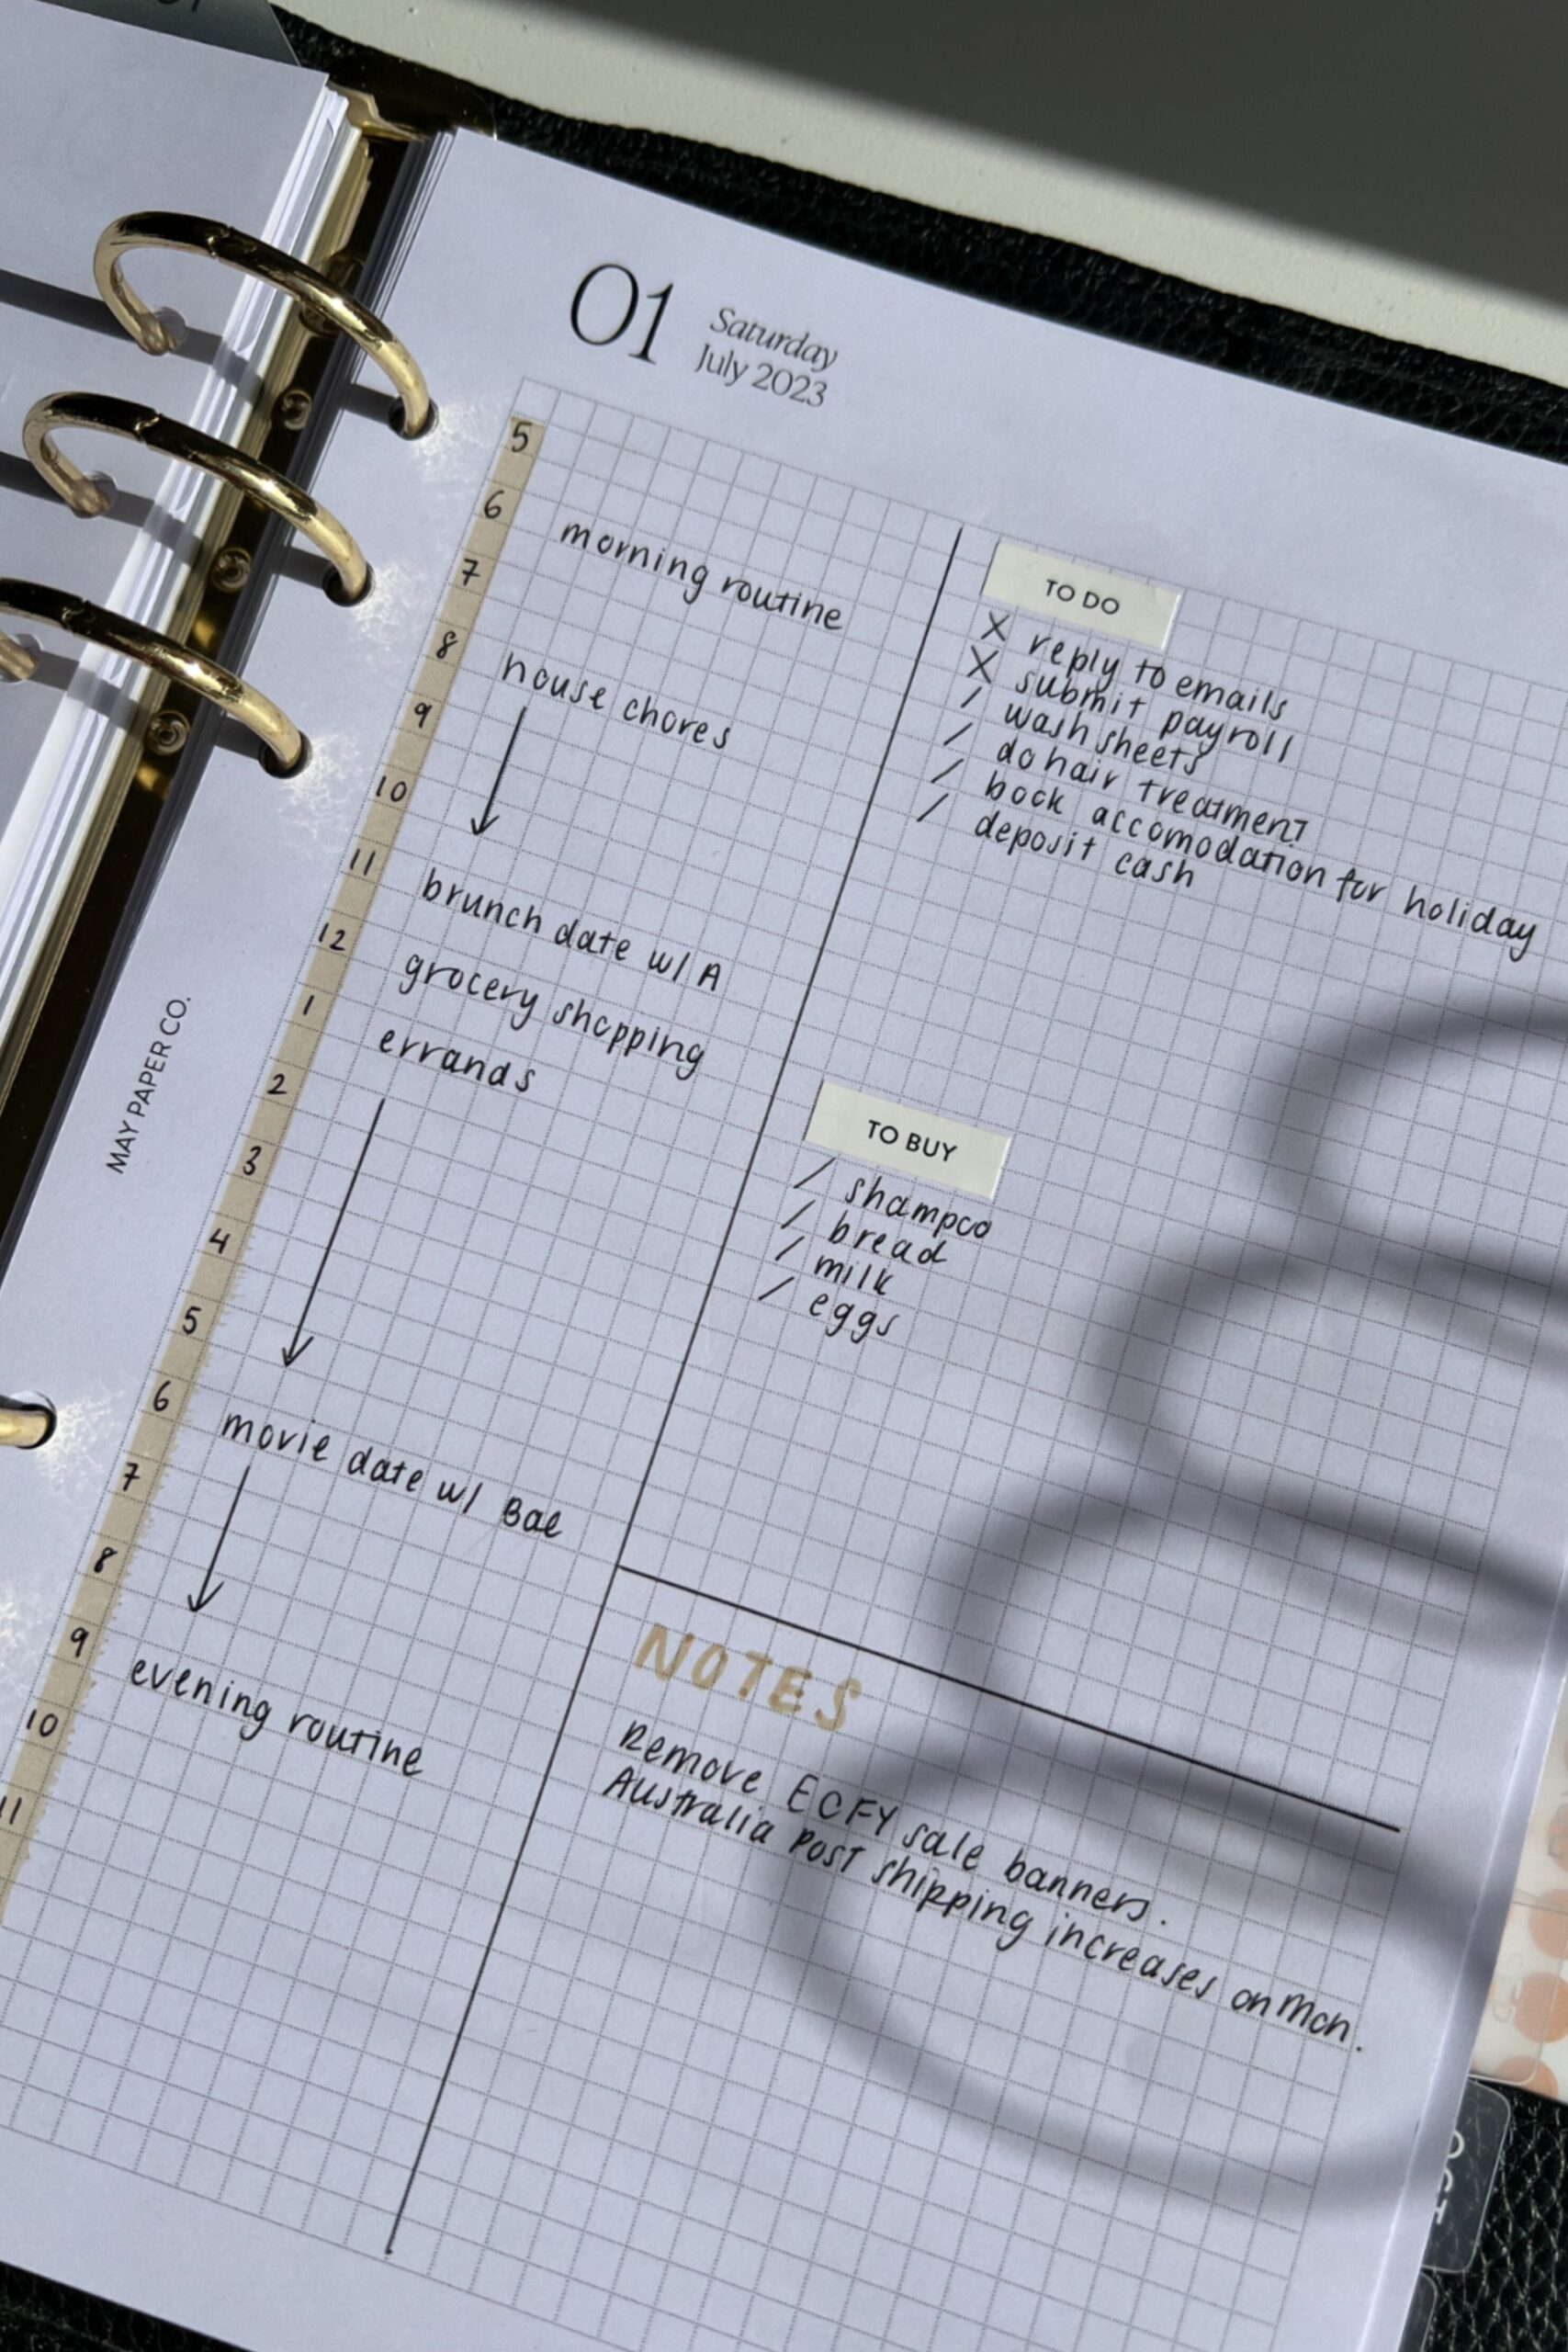 01 Saturday
July 2023
5
6
morning routine
7
8
house chores
9
10
11
brunch date w/ A
12
grocery shopping
1
errands
2
3
4
5
6
movie date w/ Bae
7
8
9
evening routine
10
11
TO DO
X reply to emails
X submit payroll
/ wash sheets
/ do hair treatment
/ book accomodation for holiday
/ deposit cash
TO BUY
/ shampoo
/ bread
/ milk
/ eggs
NOTES
Remove EOFY sale banners.
Australia Post shipping increases on Mon.
MAY PAPER CO.
OCT